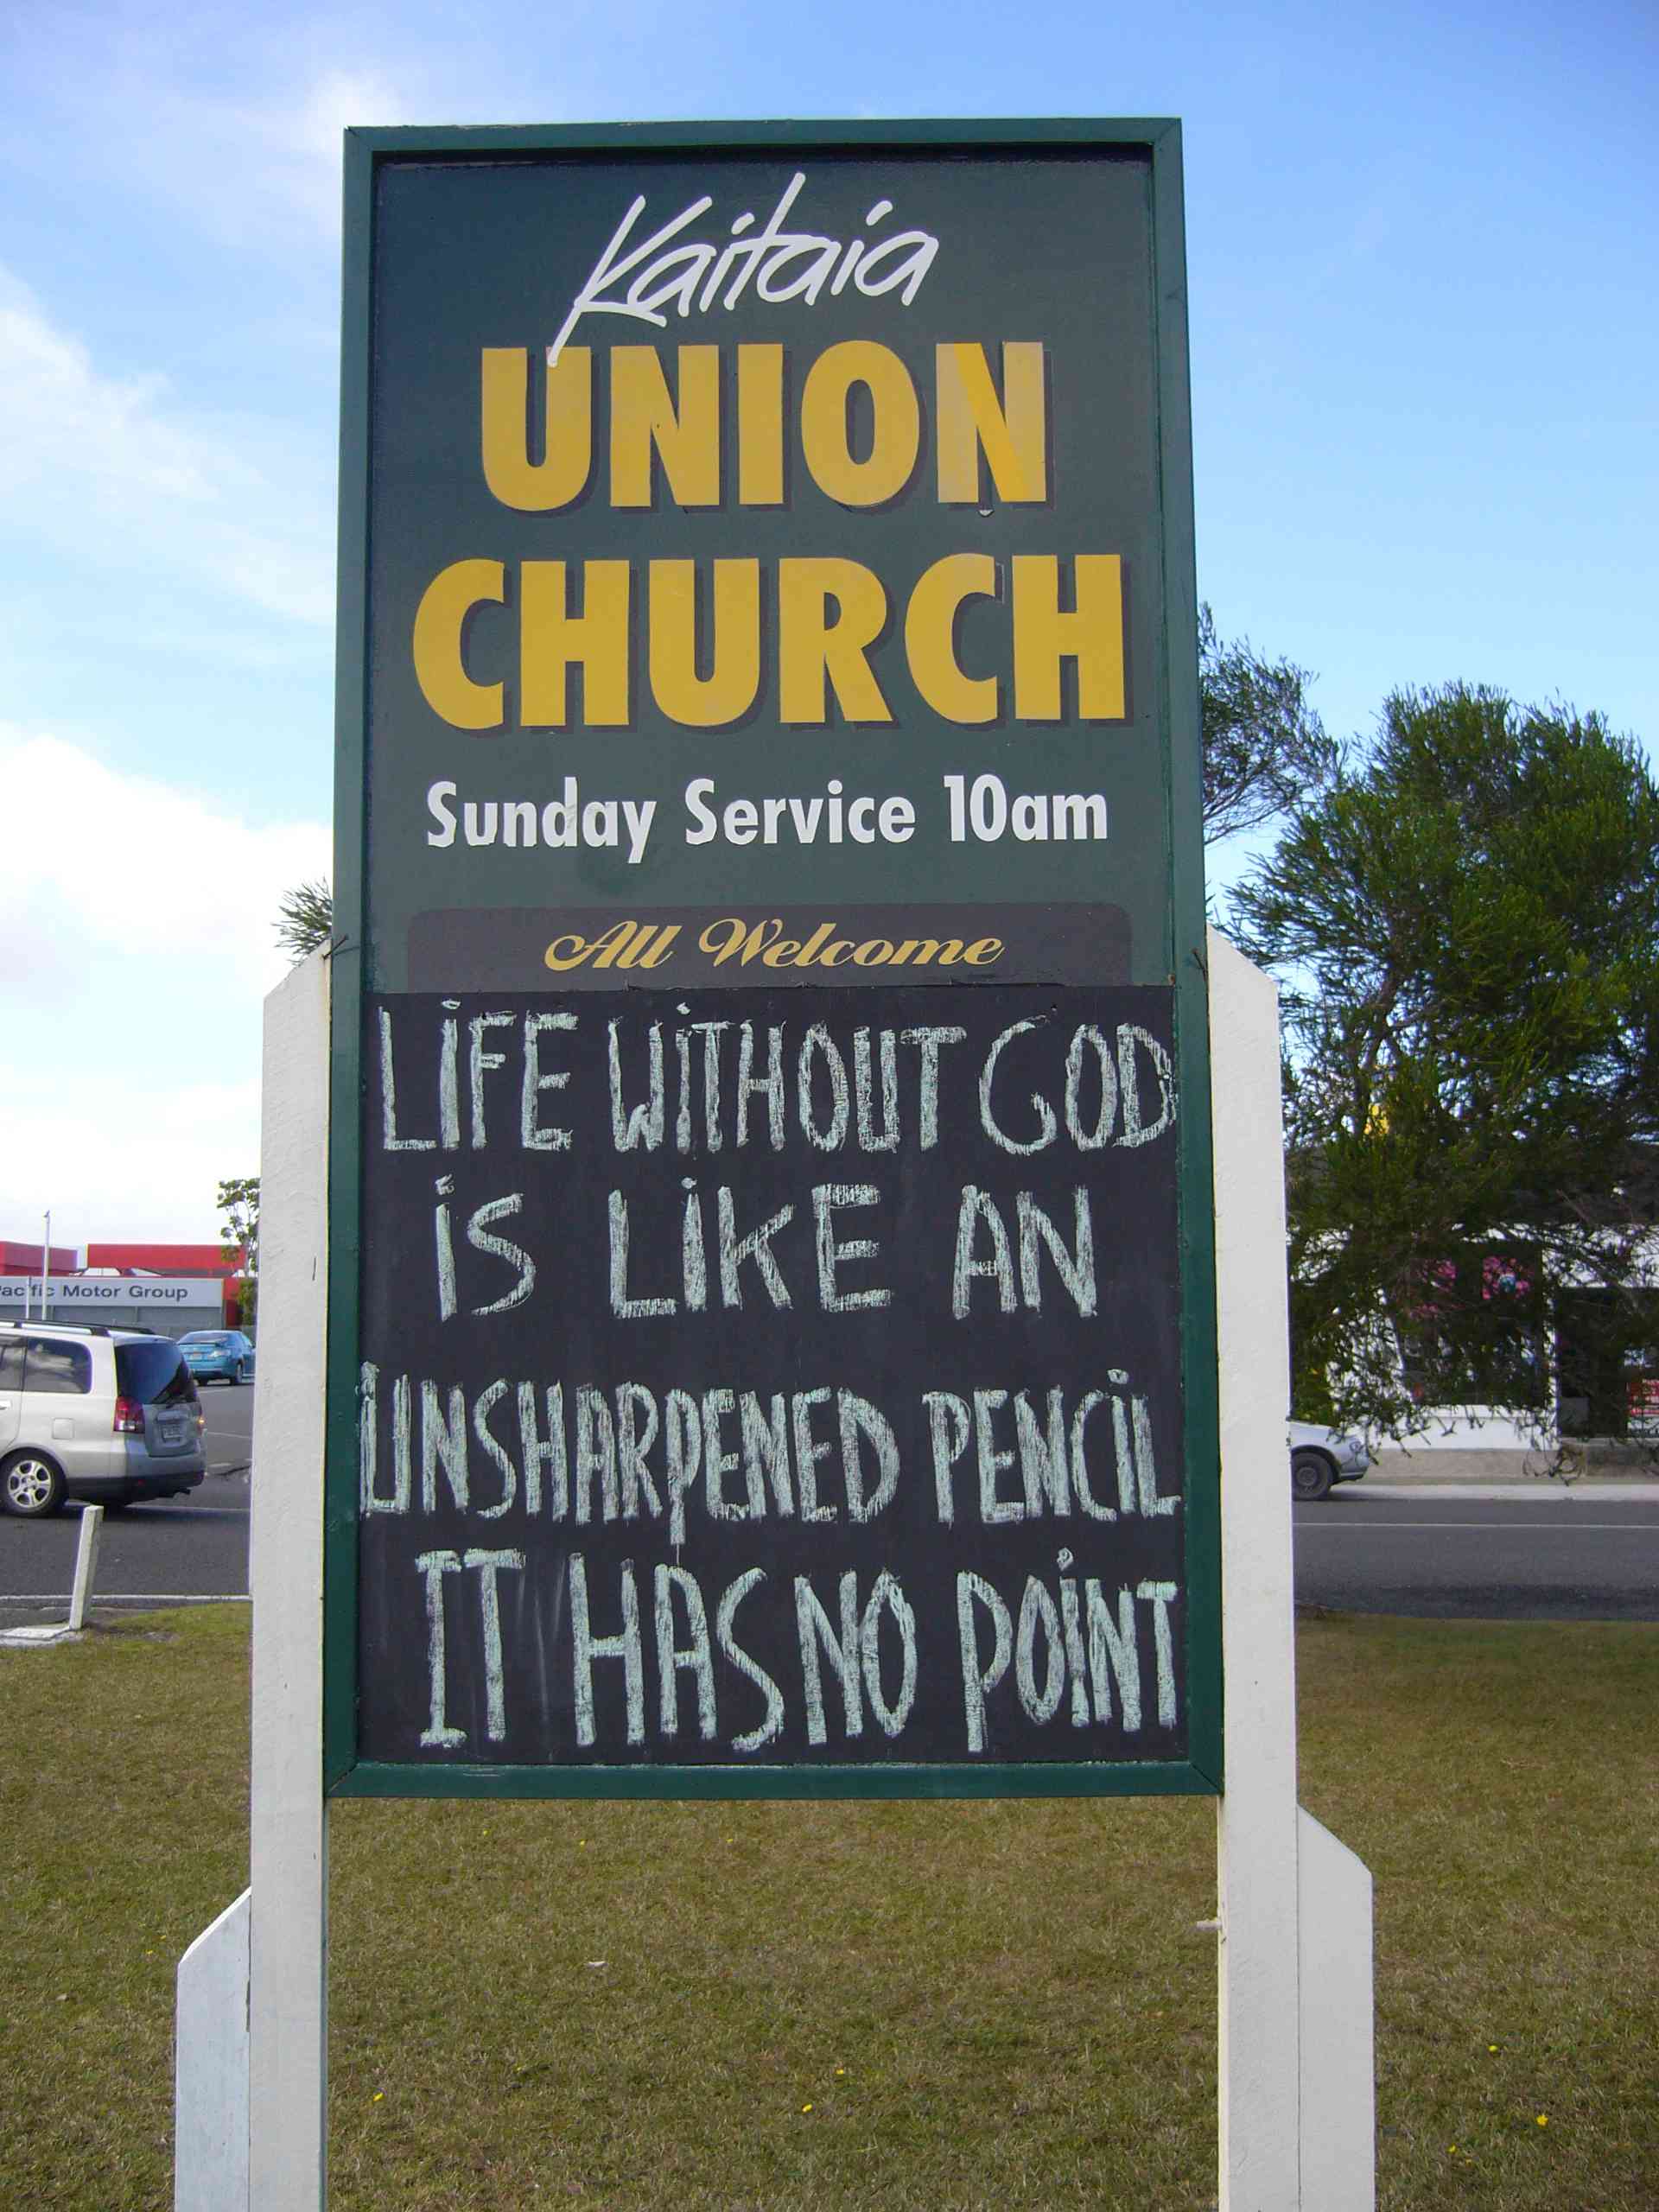 Kaitaia
UNION
CHURCH
Sunday Service 10am
All Welcome
LiFE WiTHOUT GOD
iS LiKE AN
UNSHARPENED PENCiL
IT HAS NO POiNT
Pacific Motor Group